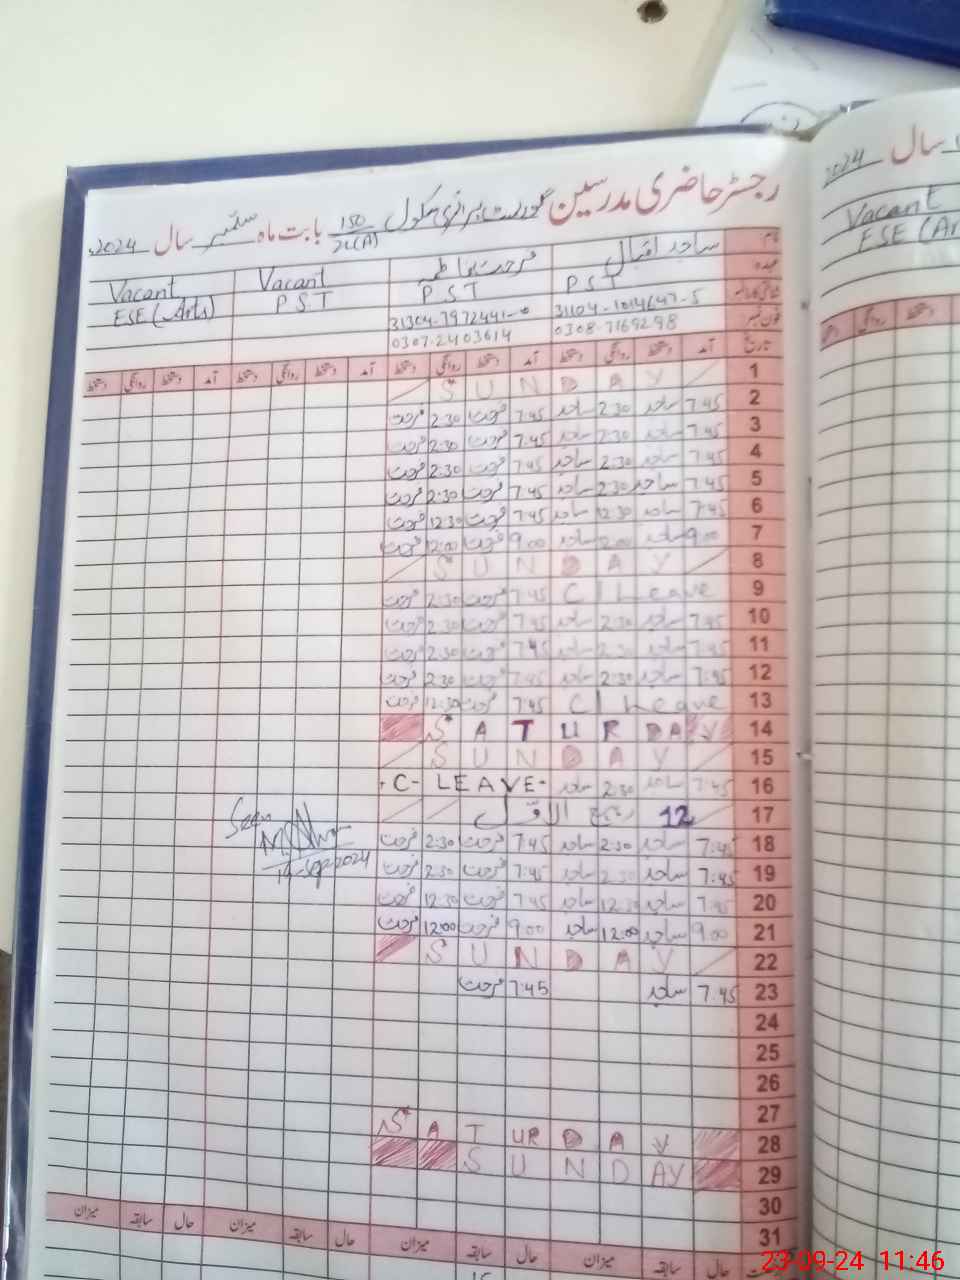 رجسٹر حاضری مدرسین گورنمنٹ پرائمری سکول 150/2L(A) بابت ماہ ستمبر سال 2024
2024 سال
نام ساجد اقبال فرحت فاطمہ Vacant Vacant
Vacant
عہدہ PST PST PST ESE (Arts)
شناختی کارڈ نمبر
فون نمبر 0308-7169298 0307-2403614
تاریخ آمد دستخط روانگی دستخط آمد دستخط روانگی دستخط آمد دستخط روانگی دستخط آمد دستخط روانگی دستخط
1 SUNDAY
2 7:45 ساجد 2:30 ساجد 7:45 فرحت 2:30 فرحت
3 7:45 ساجد 2:30 ساجد 7:45 فرحت 2:30 فرحت
4 7:45 ساجد 2:30 ساجد 7:45 فرحت 2:30 فرحت
5 7:45 ساجد 2:30 ساجد 7:45 فرحت 2:30 فرحت
6 7:45 ساجد 12:30 ساجد 7:45 فرحت 12:30 فرحت
7 9:00 ساجد 12:00 ساجد 9:00 فرحت 12:00 فرحت
8 SUNDAY
9 C/Leave 7:45 فرحت 2:30 فرحت
10 7:45 ساجد 2:30 ساجد 7:45 فرحت 2:30 فرحت
11 7:45 ساجد 2:30 ساجد 7:45 فرحت 2:30 فرحت
12 7:45 ساجد 2:30 ساجد 7:45 فرحت 2:30 فرحت
13 C/Leave 7:45 فرحت 12:30 فرحت
14 SATURDAY
15 SUNDAY
16 7:45 ساجد 2:30 ساجد C-LEAVE-
17 12 ربیع الاوّل
18 7:45 ساجد 2:30 ساجد 7:45 فرحت 2:30 فرحت
Seen
19 7:45 ساجد 2:30 ساجد 7:45 فرحت 2:30 فرحت
20 7:45 ساجد 12:30 ساجد 7:45 فرحت 12:30 فرحت
21 9:00 ساجد 12:00 ساجد 9:00 فرحت 12:00 فرحت
22 SUNDAY
23 7:45 ساجد 7:45 فرحت
24
25
26
27
28 SATURDAY
29 SUNDAY
30
31
حال سابقہ میزان حال سابقہ میزان حال سابقہ میزان حال سابقہ میزان
23-09-24 11:46